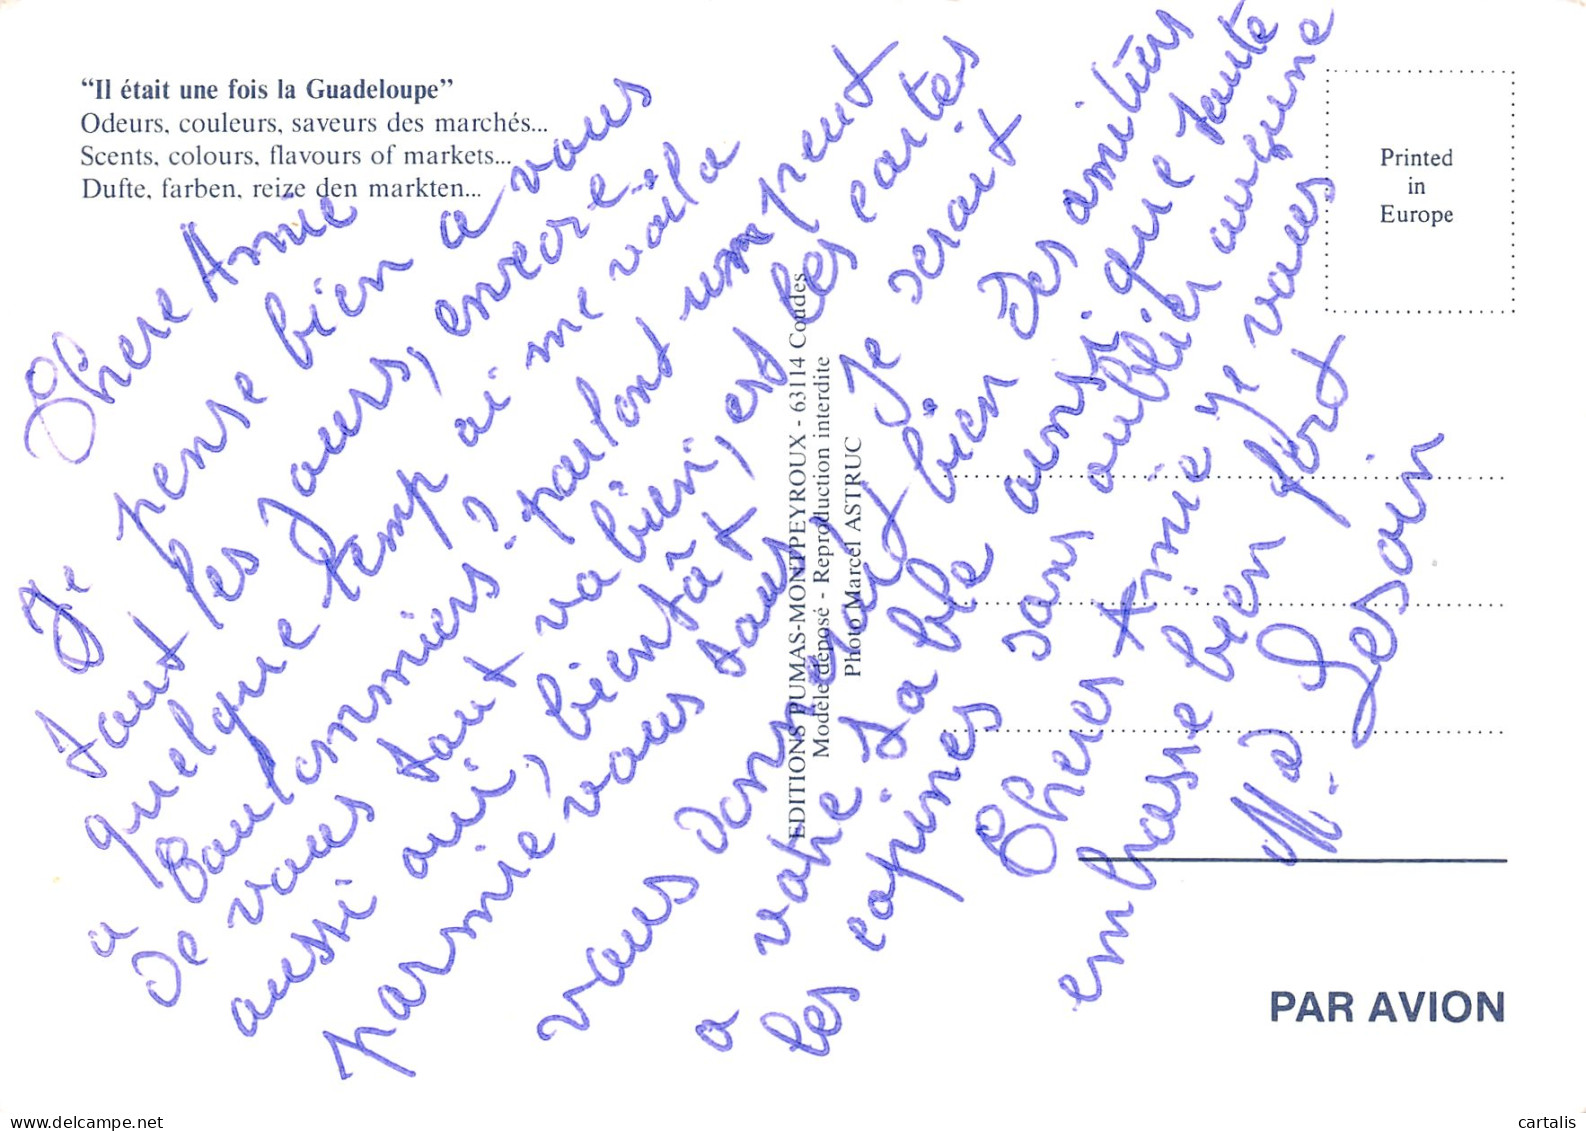 "Il était une fois la Guadeloupe"
Odeurs, couleurs, saveurs des marchés...
Scents, colours, flavours of markets...
Dufte, farben, reize den markten...
Printed
in
Europe
Chere Annie
Je pense bien a vous
tout les jours, encore
quelque temp ai me voila
a Coulommiers, parlont um peut
De vous tout va bien, est les cartes
aussi oui, bientôt Je serait
parmie vous tous
vous donne dout bien Des amitiers
a votre table ainsi que toute
les copines sans oublier aucune
Cheres Amie Je vous
embrasse bien fort
Md Lesoin
EDITIONS PUMAS-MONTPEYROUX - 63114 Coudes
Modèle déposé - Reproduction interdite
Photo Marcel ASTRUC
PAR AVION
www.delcampe.net
cartalis